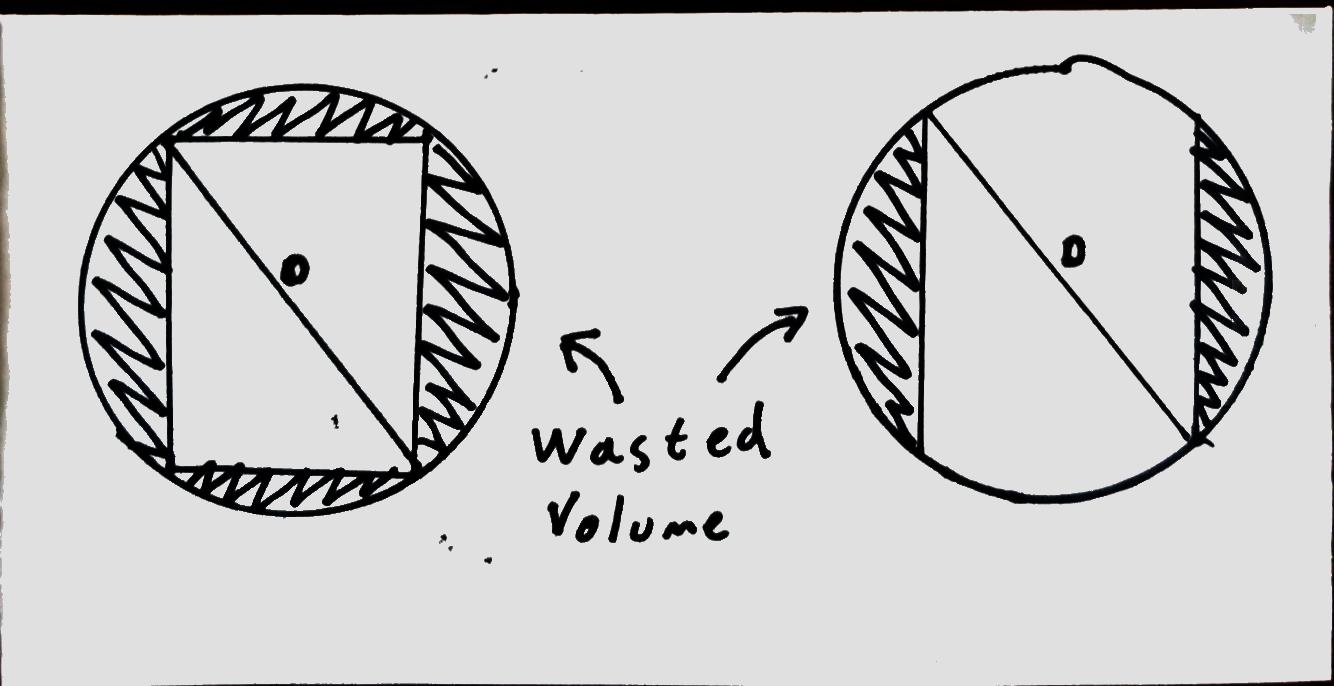 D
D
Wasted
Volume